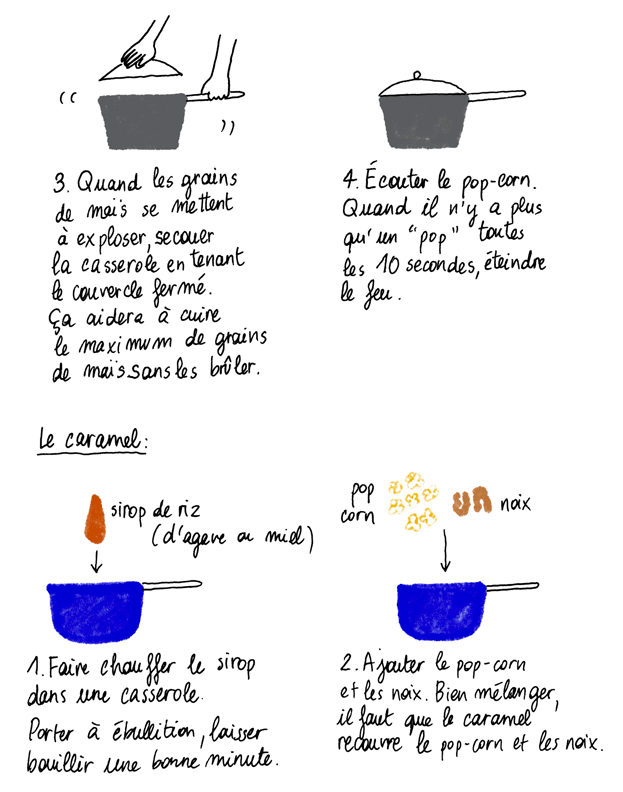 3. Quand les grains
de maïs se mettent
à exploser, secouer
la casserole en tenant
le couvercle fermé.
Ça aidera à cuire
le maximum de grains
de maïs sans les brûler.
4. Écouter le pop-corn.
Quand il n'y a plus
qu'un "pop" toutes
les 10 secondes, éteindre
le feu.
Le caramel:
sirop de riz
(d'agave ou miel)
1. Faire chauffer le sirop
dans une casserole.
Porter à ébullition, laisser
bouillir une bonne minute.
pop
corn
noix
2. Ajouter le pop-corn
et les noix. Bien mélanger,
il faut que le caramel
recouvre le pop-corn et les noix.